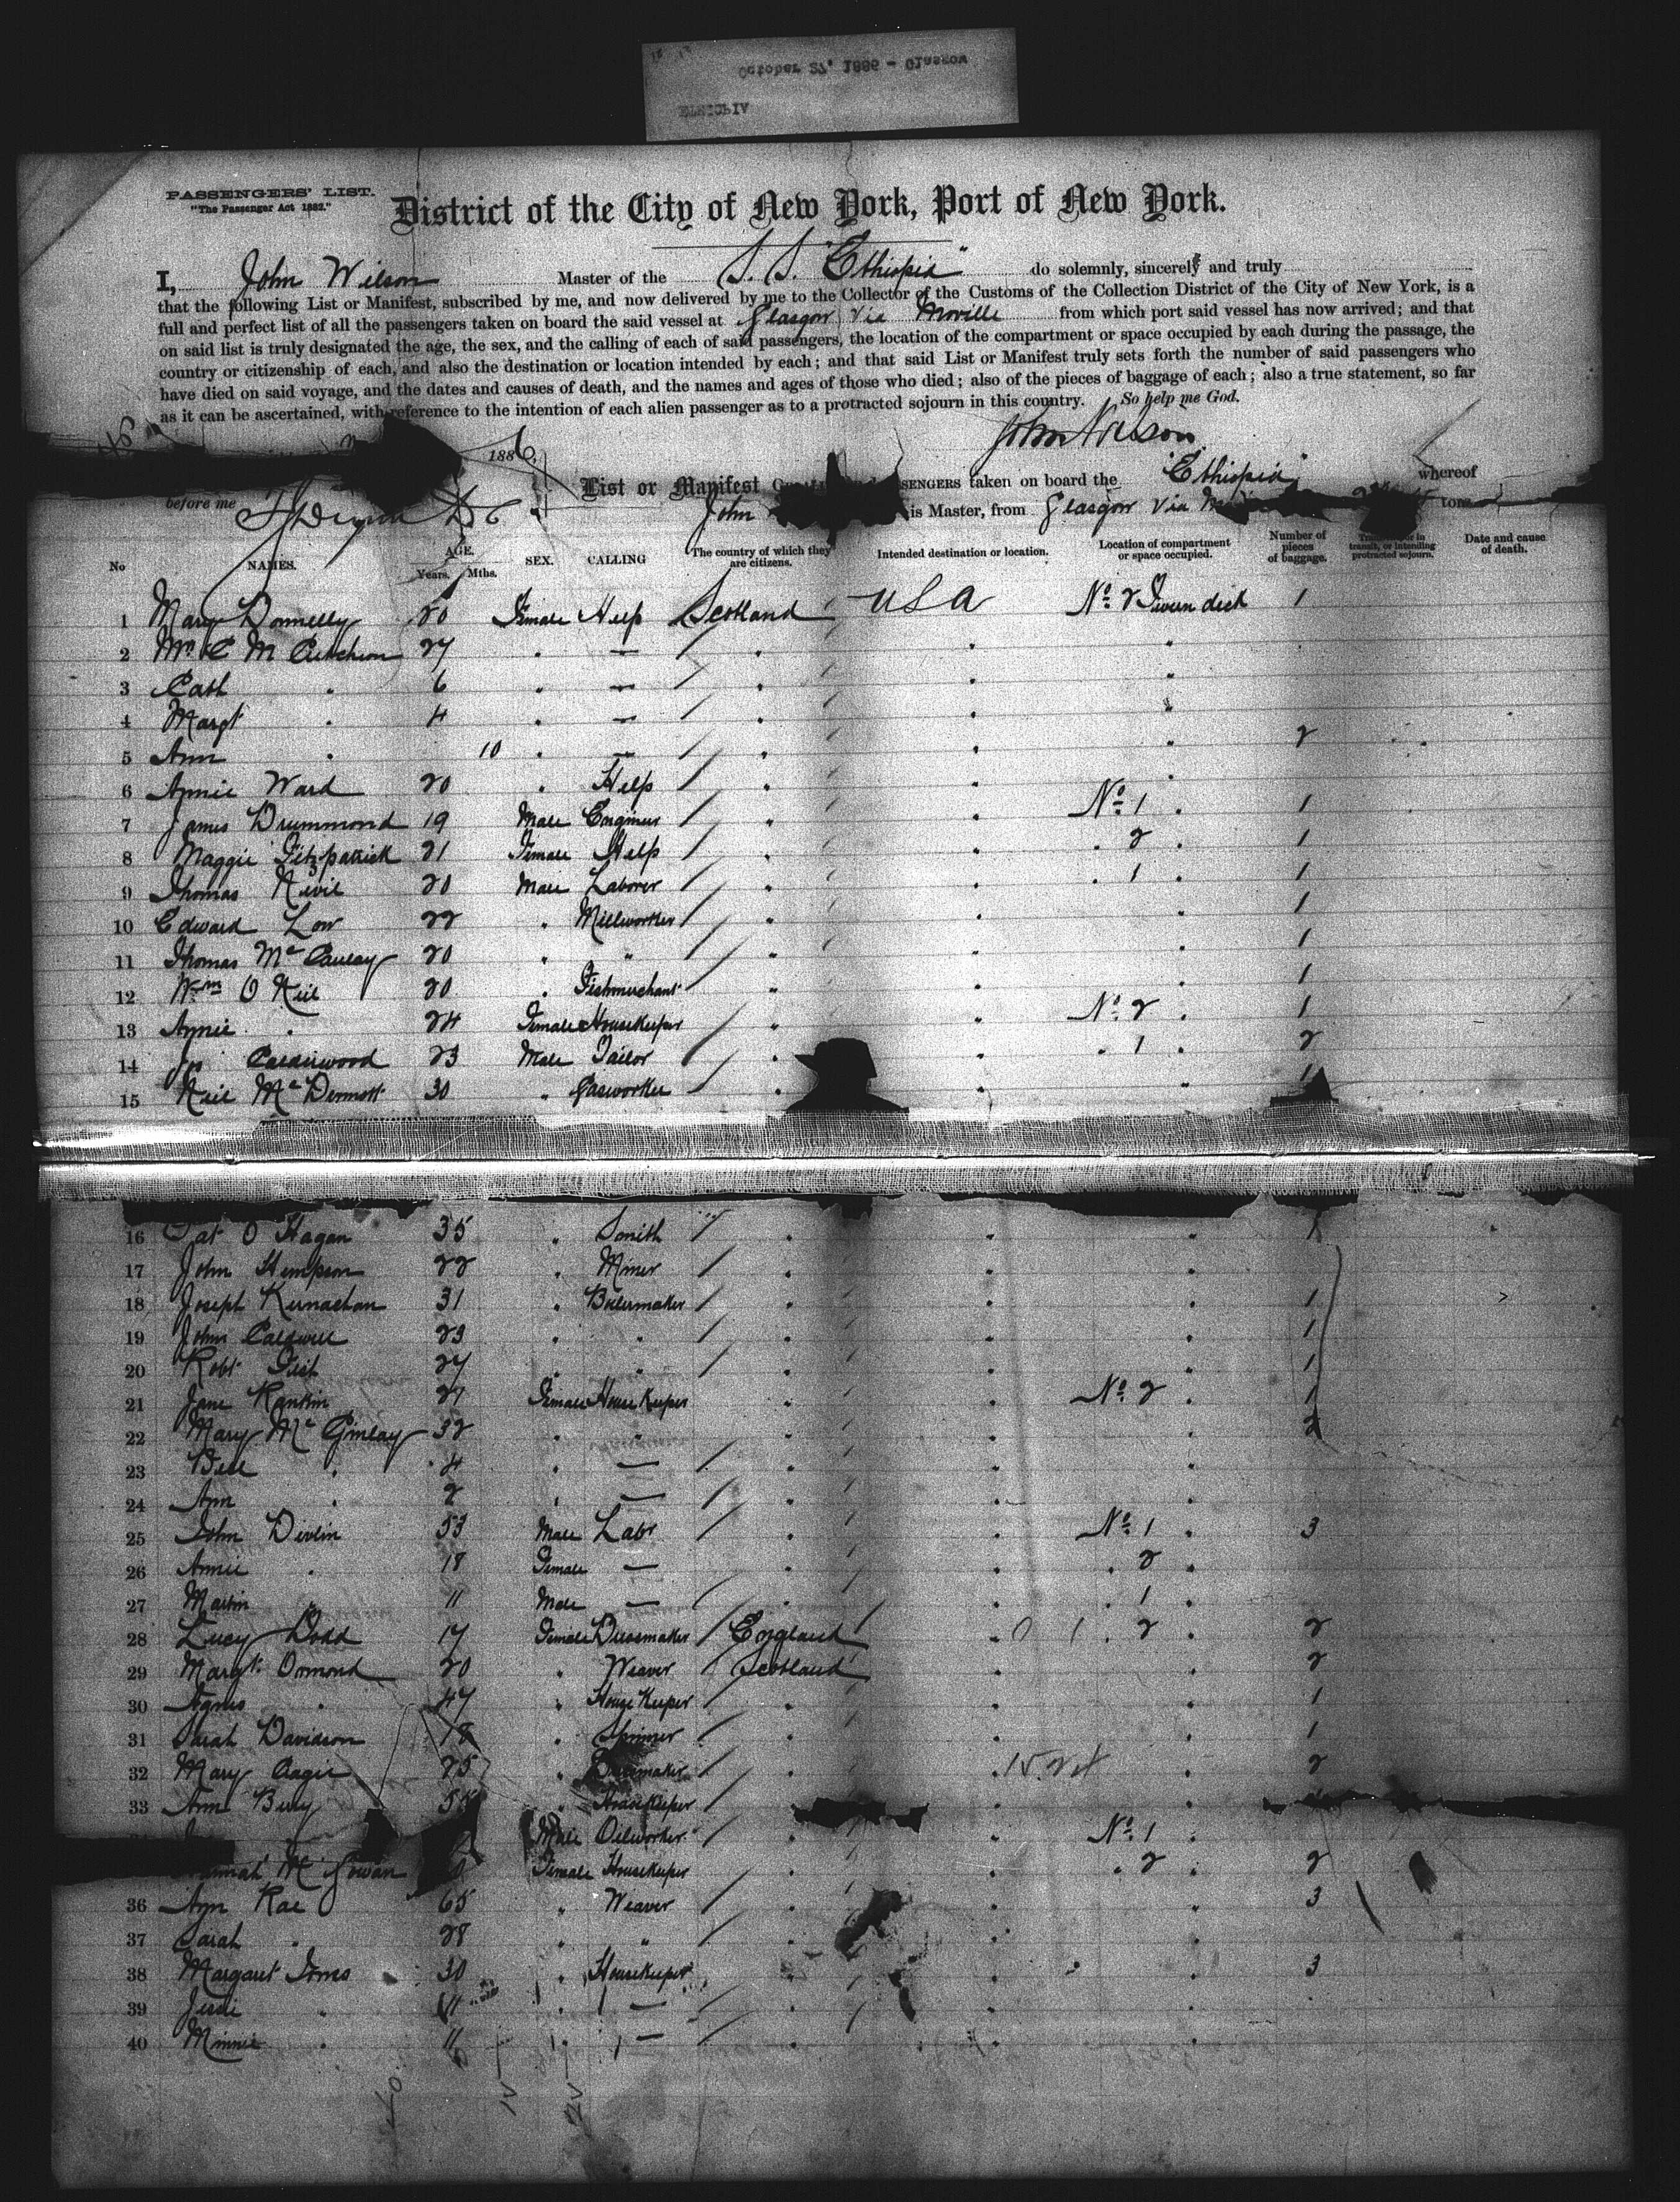 October 27, 1886 - Glasgow
ETHIOPIA
PASSENGERS' LIST.
"The Passenger Act 1882."
District of the City of New York, Port of New York.
I, John Wilson Master of the S. S. "Ethiopia" do solemnly, sincerely and truly
that the following List or Manifest, subscribed by me, and now delivered by me to the Collector of the Customs of the Collection District of the City of New York, is a
full and perfect list of all the passengers taken on board the said vessel at Glasgow via Moville from which port said vessel has now arrived; and that
on said list is truly designated the age, the sex, and the calling of each of said passengers, the location of the compartment or space occupied by each during the passage, the
country or citizenship of each, and also the destination or location intended by each; and that said List or Manifest truly sets forth the number of said passengers who
have died on said voyage, and the dates and causes of death, and the names and ages of those who died; also of the pieces of baggage of each; also a true statement, so far
as it can be ascertained, with reference to the intention of each alien passenger as to a protracted sojourn in this country. So help me God.
John Wilson
1886
List or Manifest SENGERS taken on board the "Ethiopia" whereof
before me John is Master, from Glasgow via tons
No NAMES. AGE. Years. Mths. SEX. CALLING The country of which they are citizens. Intended destination or location. Location of compartment or space occupied. Number of pieces of baggage. transit, or intending protracted sojourn. Date and cause of death.
1 Mary Donnelly 20 Female Help Scotland USA No. 2 Tween deck 1
2 Mrs C McCutcheon 27 " — " " "
3 Cath " 6 " — " " "
4 Margt " 4 " — " " "
5 Ann " 10 " — " " " 2
6 Annie Ward 20 " Help " " "
7 James Drummond 19 Male Engineer " " No. 1 " 1
8 Maggie Fitzpatrick 21 Female Help " " " 2 1
9 Thomas Nevil 20 Male Laborer " " " 1 " 1
10 Edward Low 22 " Millworker " " " 1
11 Thomas McCauley 20 " " " " " 1
12 Wm O Neil 20 " Fishmerchant " " " 1
13 Annie " 24 Female Housekeeper " " No. 2 " 1
14 Calderwood 23 Male Tailor " " " 1 " 2
15 Neil McDermott 30 " Gasworker " " " 1
16 Pat O Hagan 35 " Smith " " " 1
17 John Hempson 22 " Miner " " "
18 Joseph Kernachan 31 " Boilermaker " " " 1
19 John Caldwell 23 " " " " " 1
20 Robt 27 " " " " " 1
21 Jane Rankin 27 Female House Keeper " " No. 2 " 1
22 Mary McGinlay 32 " " " " " 2
23 Bell " 4 " — " " "
24 Ann " 2 " — " " "
25 John Divlin 53 Male Labr " " No. 1 " 3
26 Annie " 18 Female — " " " 2 "
27 Martin " 11 Male — " " 1 "
28 Lucy Dodd 17 Female Dressmaker England " " 2 " 2
29 Margt. Ormond 20 " Weaver Scotland " " 2
30 Agnes " 47 " House Keeper " " " 1
31 Sarah Davidson 18 " Spinner " " " 1
32 Mary 25 " Dressmaker " " " 2
33 Ann 55 " Housekeeper " " "
Male Oilworker " " No. 1 "
McGowan Female Housekeeper " " " 2 " 2
36 Ann Rae 65 " Weaver " " " 3
37 Sarah " 28 " " " " "
38 Margaret 30 " Housekeeper " " " 3
39 " 11 " — " " "
40 Minnie " " — " " "